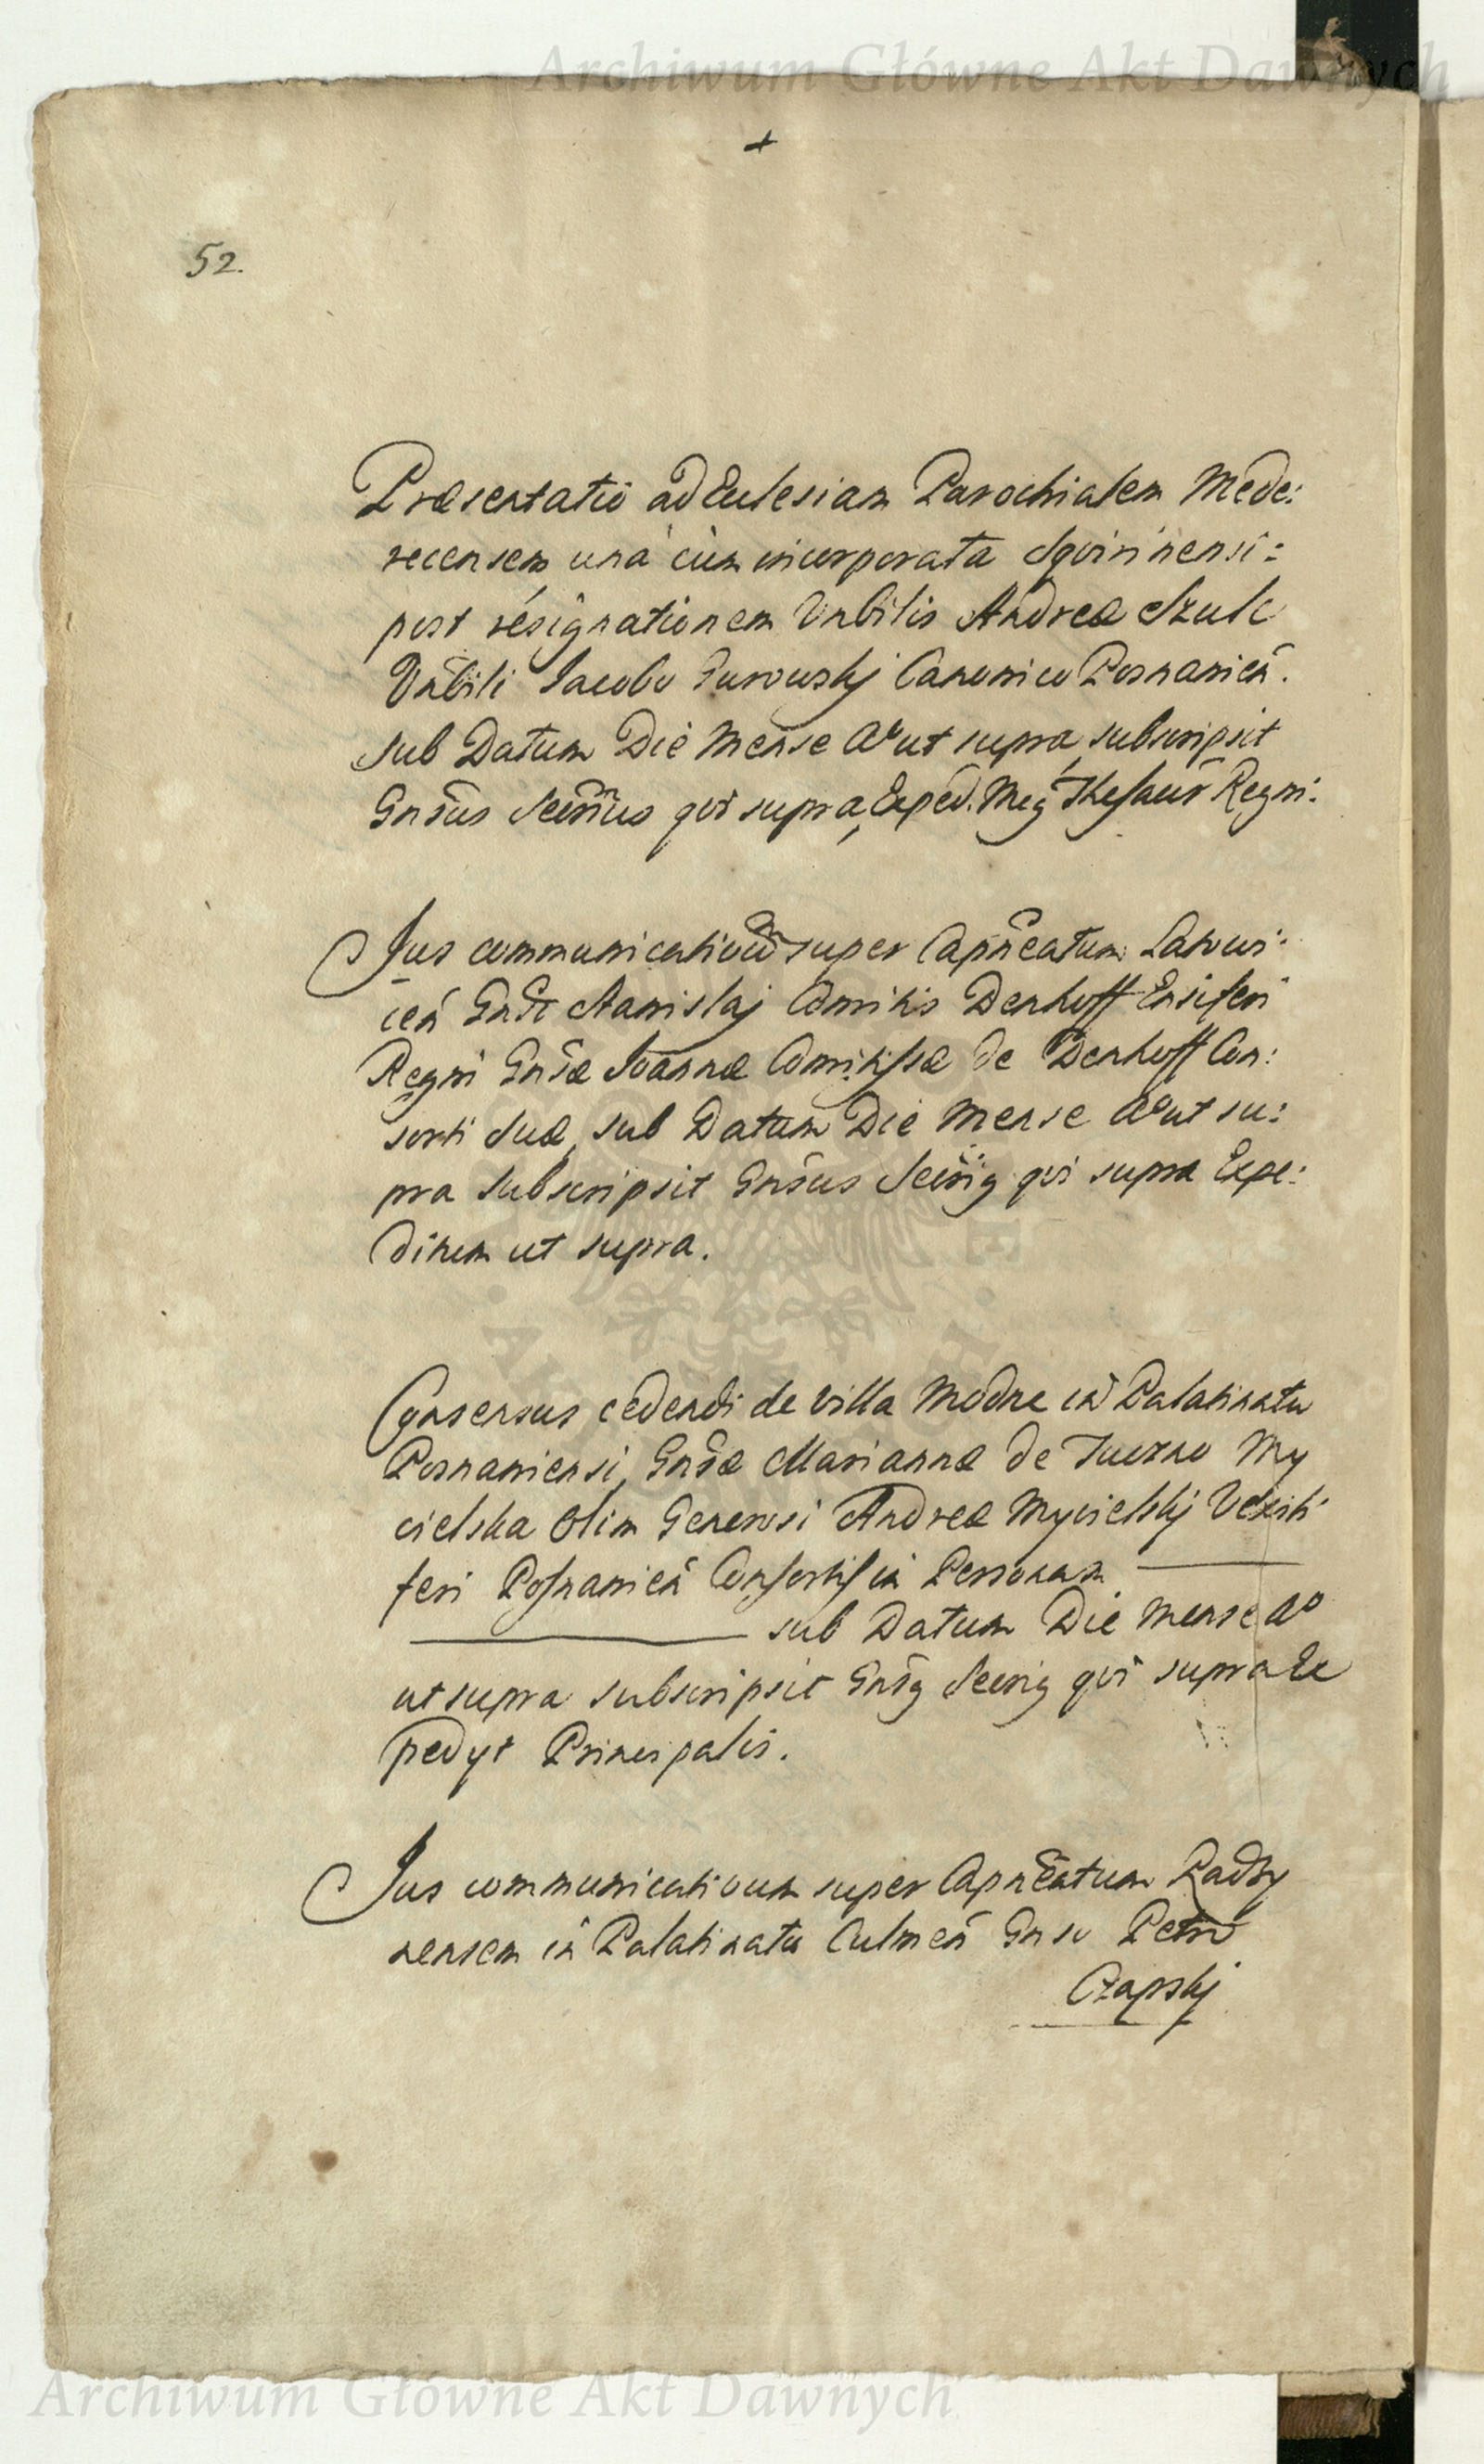 Archiwum Główne Akt Dawnych
52.
Præsentatio ad Ecclesiam Parochialem Mede:
recensem unà cùm incorporata
post resignationem Vnbilis Andreæ Szulc
Vnbili Iacobo Gurowskj Canonico Posnanien̄.
Sub Datum Die Mense Aº ut supra, subscripsit
Gnsus qui supra, Exped. Regni:
Jus communicativum super Capnēatum Latowi:
cen̄ Stanislaj Comitis Denhoff Ensiferi
Regni Gnsæ Ioannæ Comitissæ de Denhoff Con:
sorti suæ, sub Datum Die Mense Aº ut su:
pra subscripsit Gnsus qui supra Expe:
ditum ut supra.
Consensus cedendi de villa Modrze in Palatinatu
Posnaniensi, Gnsæ Mariannæ de My
cielska olim Generosi Andreæ Mycielskj Vexili
feri Posnanien̄ Consortis in Personam ———
——— sub Datum Die Mense Aº
ut supra subscripsit qui supra Ex
pedyt Principalis.
Jus communicativum super Capnēatum Radzy
nensem in Palatinatu Culmen̄ Gnso Petro
Czapskj
Archiwum Główne Akt Dawnych